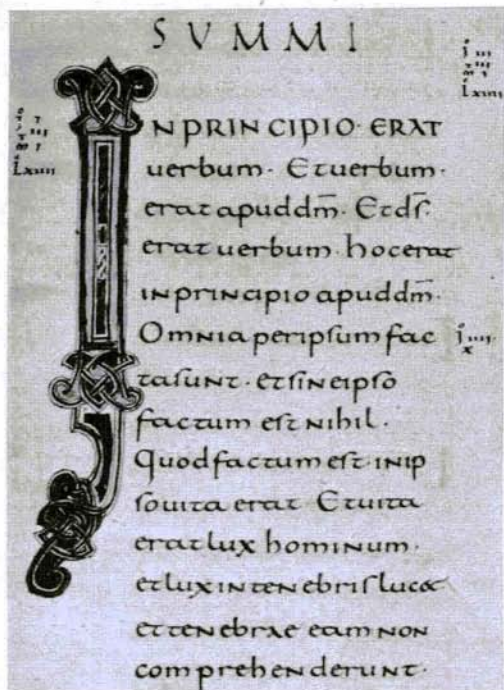 SUMMI
IN PRINCIPIO · ERAT
uerbum · Et uerbum ·
erat apud dm̅ · Et ds̅ ·
erat uerbum · hoc erat
in principio apud dm̅ ·
Omnia per ipsum fac
ta sunt · et sine ipso
factum est nihil ·
Quod factum est in ip
so uita erat · Et uita
erat lux hominum ·
et lux in tenebris lucet
et tenebrae eam non
comprehenderunt ·